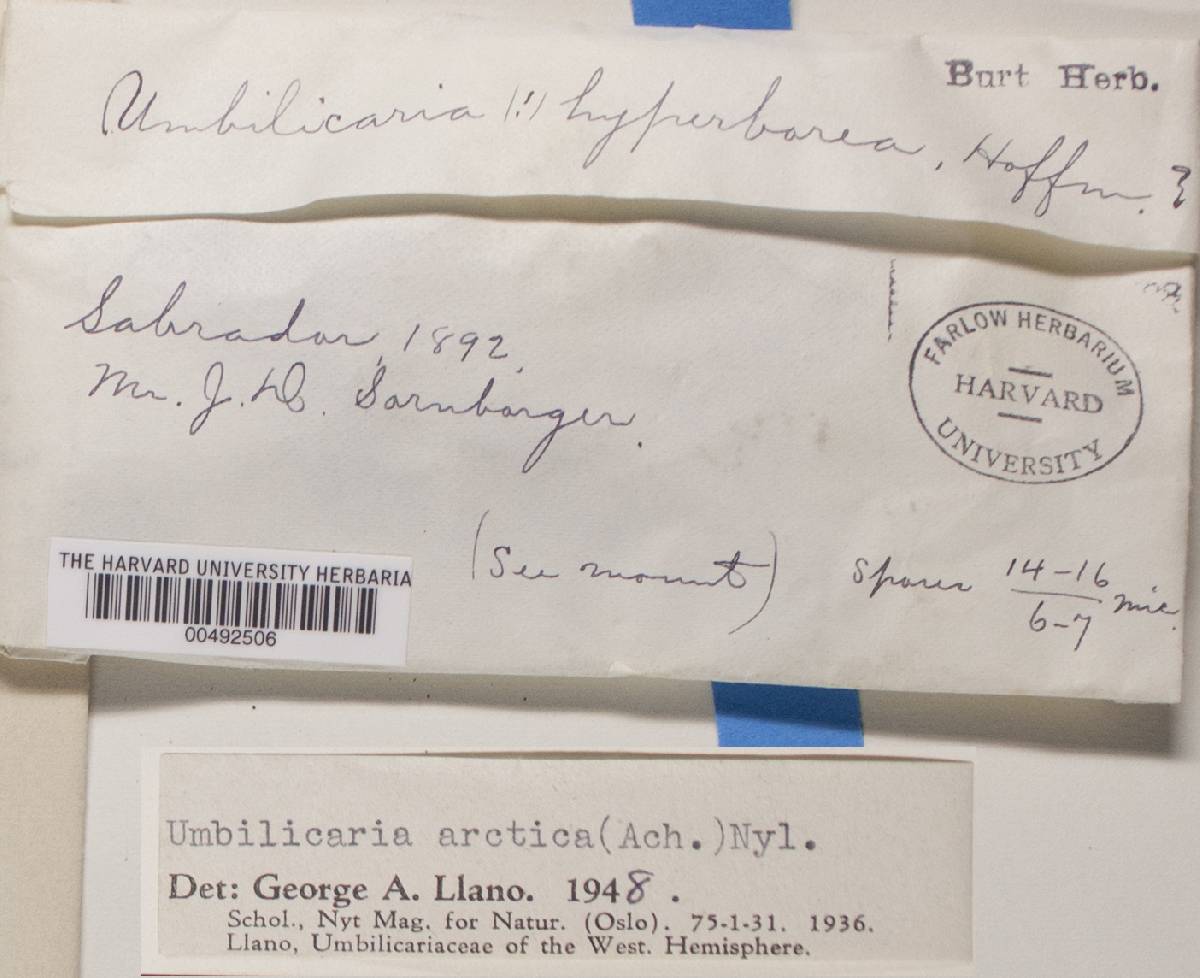 Burt Herb.
Umbilicaria (!) hyperborea, Hoffm. ?
Labrador, 1892.
Mr. J. D. Sornborger.
FARLOW HERBARIUM
HARVARD
UNIVERSITY
(See mount)
Spores 14-16
6-7 mic.
THE HARVARD UNIVERSITY HERBARIA
00492506
Umbilicaria arctica(Ach.)Nyl.
Det: George A. Llano. 1948.
Schol., Nyt Mag. for Natur. (Oslo). 75-1-31. 1936.
Llano, Umbilicariaceae of the West. Hemisphere.